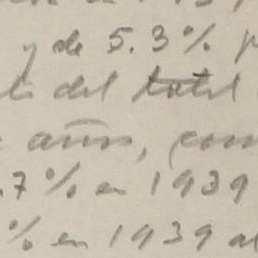 y de 5.3%
del total
años, com
.7% en 1939
% en 1939 al